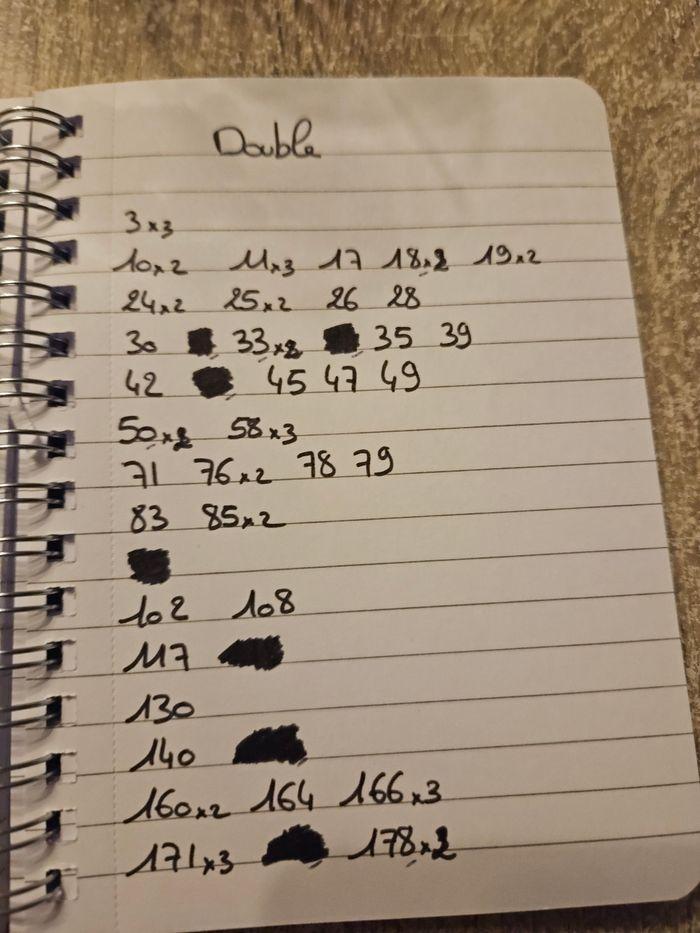 Double
3x3
10x2 11x3 17 18x2 19x2
24x2 25x2 26 28
30 33x2 35 39
42 45 47 49
50x2 58x3
71 76x2 78 79
83 85x2
102 108
117
130
140
160x2 164 166x3
171x3 178x2